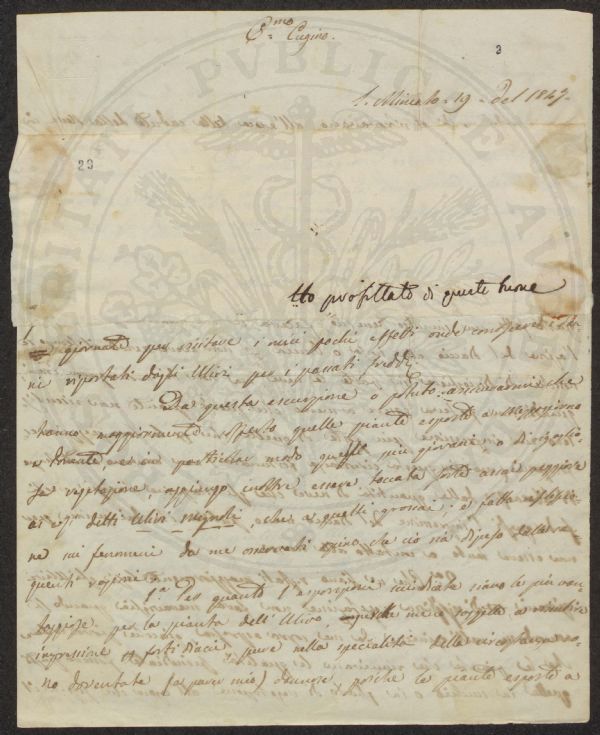 3
C.mo Cugino.
S. Miniato. 19. del 1847.
23
Ho profittato di queste buone
giornate per visitare i miei pochi effetti onde conoscere i dan
ni riportati dagli Ulivi per i passati freddi.
Da questa escursione o potuto assicurarmi che
hanno maggiormente sofferto quelle piante esposte a Mezzogiorno
a Ponente ed in particolar modo quelle più giovani, o di rigoglio
sa vegetazione, aggiungo inoltre essere toccata sorte assai peggiore
ai così detti Ulivi mignoli, che a quelli grossai; e fatta riflessio
ne sui fenomeni da me osservati che ciò sia dipeso dalle se
guenti ragioni.
1.a Per quanto l'esposizioni succitate siano le più van
taggiose per la pianta dell'Ulivo, meno soggette a risentire
impressione di forti diacci, pure nella specialità delle circostanze so
no diventate (a parer mio) dannose, poiché le piante esposte a